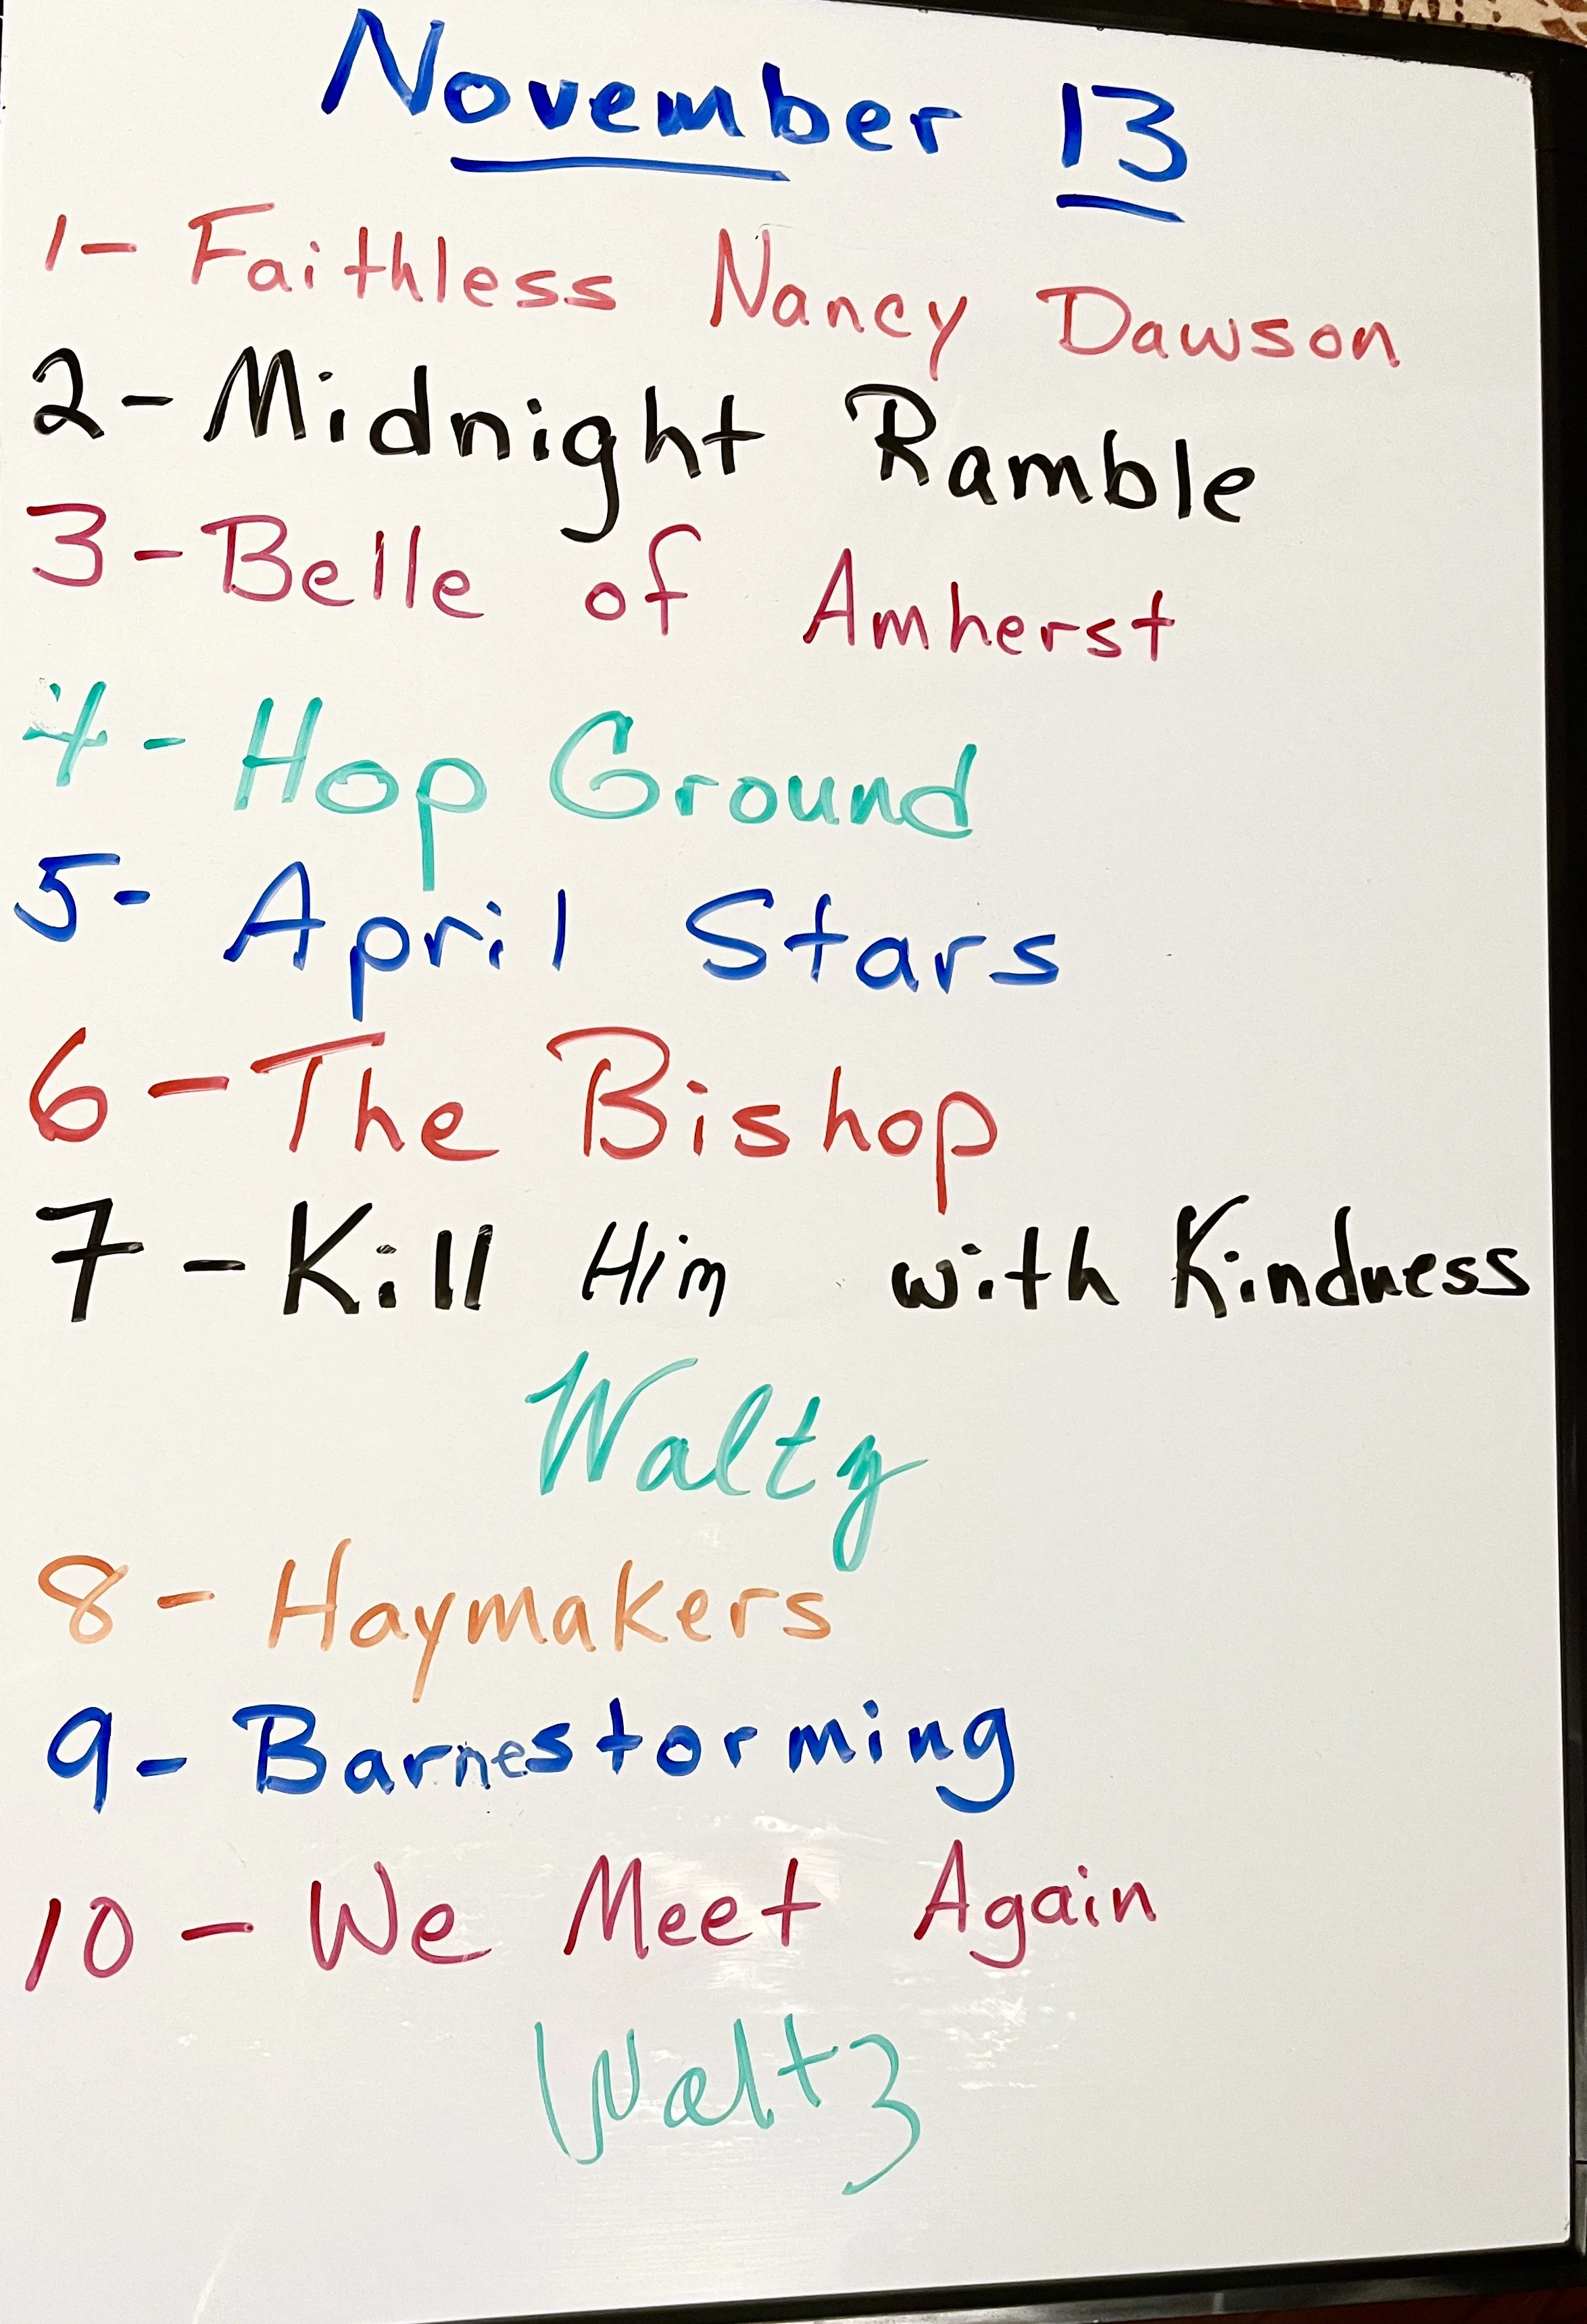 November 13
1- Faithless Nancy Dawson
2- Midnight Ramble
3- Belle of Amherst
4- Hop Ground
5- April Stars
6- The Bishop
7- Kill Him with Kindness
Waltz
8- Haymakers
9- Barnestorming
10- We Meet Again
Waltz